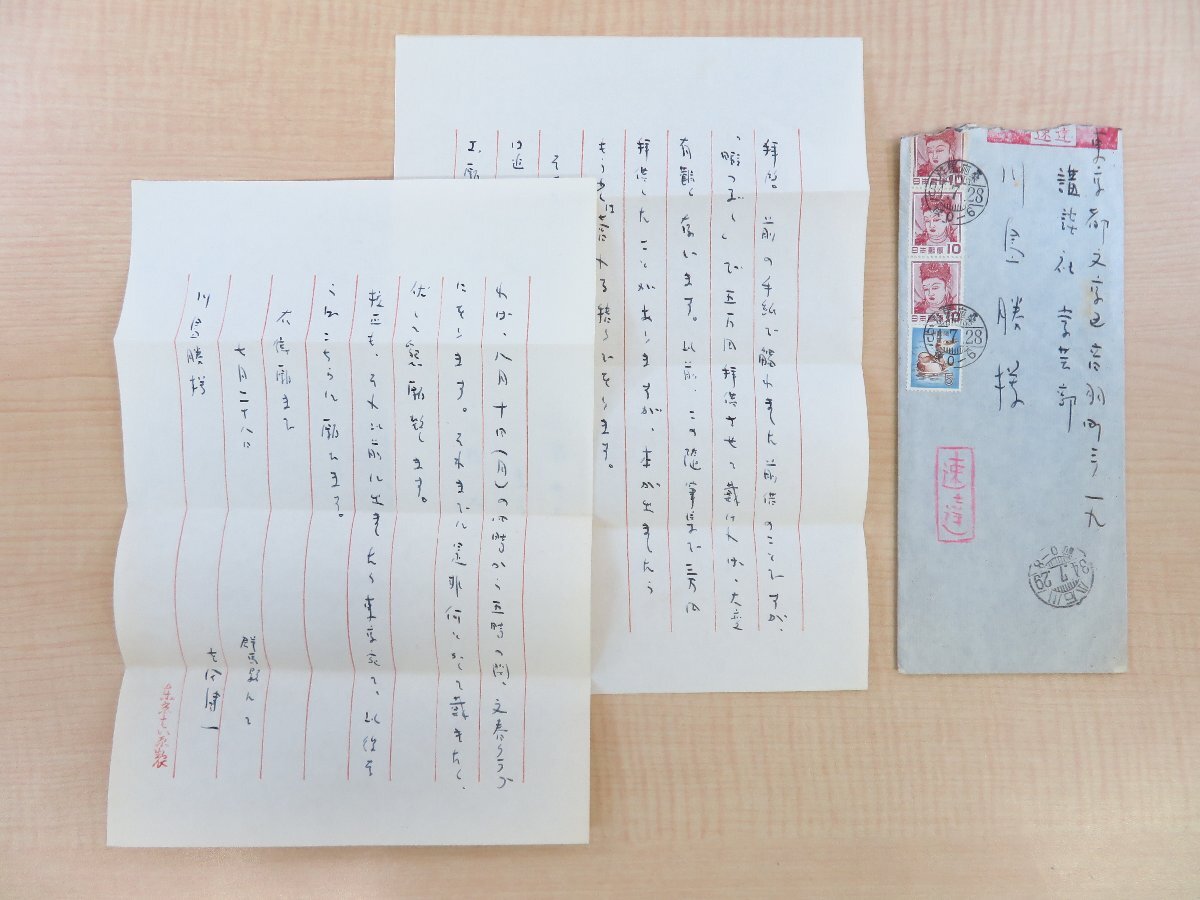 拝啓 前の手紙で触れました前借のことですが、
「暇つぶし」で五万円拝借させて戴ければ、大変
有難く存じます。以前、この随筆集で三万円
拝借したことがありますが、本が出ましたら
もう少しは書ける積りでをります。
そ
は近
工、願
れは、八月十日(月)の四時から五時の間、文春クラブ
にをります。それまでに是非何とかして戴きたく、
伏して懇願致します。
校正も、それ以前に出ましたら東京宛て、以後な
らばこちらに願ひます。
右御願まで
七月二十八日
群馬縣にて
吉田健一
川島勝様
東京ちい原製
速達
東京都文京区音羽町三ノ一九
講談社文芸部
川島勝様
速達
日本郵便 10
日本郵便 10
日本郵便 10
7.28
7.28
小石川
34.7.29